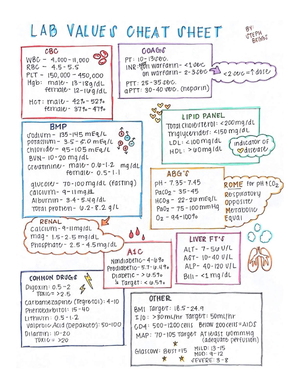 LAB VALUES CHEAT SHEET
BY:
STEPH
BEGGS
CBC
WBC - 4,000-11,000
RBC - 4.5-5.5
PLT - 150,000-450,000
Hgb: male - 13-18g/dL
female - 12-16g/dL
Hct: male - 42%-52%
female - 37%-47%
COAGs
PT: 10-13 sec.
INR: on warfarin - <1 sec
on warfarin - 2-3 sec
<2 sec = ↑dose
PTT: 25-35 sec.
aPTT: 30-40 sec. (heparin)
BMP
Sodium - 135-145 mEq/L
Potassium - 3.5-5.0 mEq/L
Chloride - 95-105 mEq/L
BUN - 10-20 mg/dL
Creatinine - male: 0.6-1.2 mg/dL
female: 0.5-1.1
glucose - 70-100 mg/dL (fasting)
Calcium - 9-11 mg/dL
Albumin - 3.4-5.4 g/dL
Total protein - 6.2-8.2 g/L
LIPID PANEL
Total cholesterol: <200 mg/dL
Triglycerides: <150 mg/dL
LDL: <100 mg/dL
HDL: >60 mg/dL
indicator of
ABG's
pH - 7.35-7.45
PaCO₂ - 35-45
HCO₃ - 22-26 mEq/L
PaO₂ - 75-100 mmHg
O₂ - 94-100%
ROME for pH & CO₂
Respiratory
Opposite
Metabolic
Equal
RENAL
Calcium - 9-11 mg/dL
mag - 1.5-2.5 mg/dL
Phosphate - 2.5-4.5 mg/dL
A1C
Nondiabetic - <6%
Prediabetic - 5.7-6.4%
Diabetic - >6.5%
↳ Target: <6.5%
LIVER FT'S
ALT - 7-56 U/L
AST - 10-40 U/L
ALP - 40-120 U/L
Bili - <1 mg/dL
COMMON DRUGS
Digoxin: 0.5-2
TOXIC = >2.5
Carbamazepine (Tegretol): 4-10
Phenobarbital: 15-40
Lithium: 0.5-1.2
Valproic Acid (Depakote): 50-100
Dilantin: 10-20
TOXIC = >20
OTHER
BMI Target: 18.5-24.9
I/O: >30mL/hr Target: 50mL/hr
CD4: 500-1200 cells Below 200 cells = AIDS
MAP: 70-105 Target: At least 60mmHg
(adequate perfusion)
Glasglow: Best = 15 MILD: 13-15
MOD: 9-12
SEVERE: 3-8